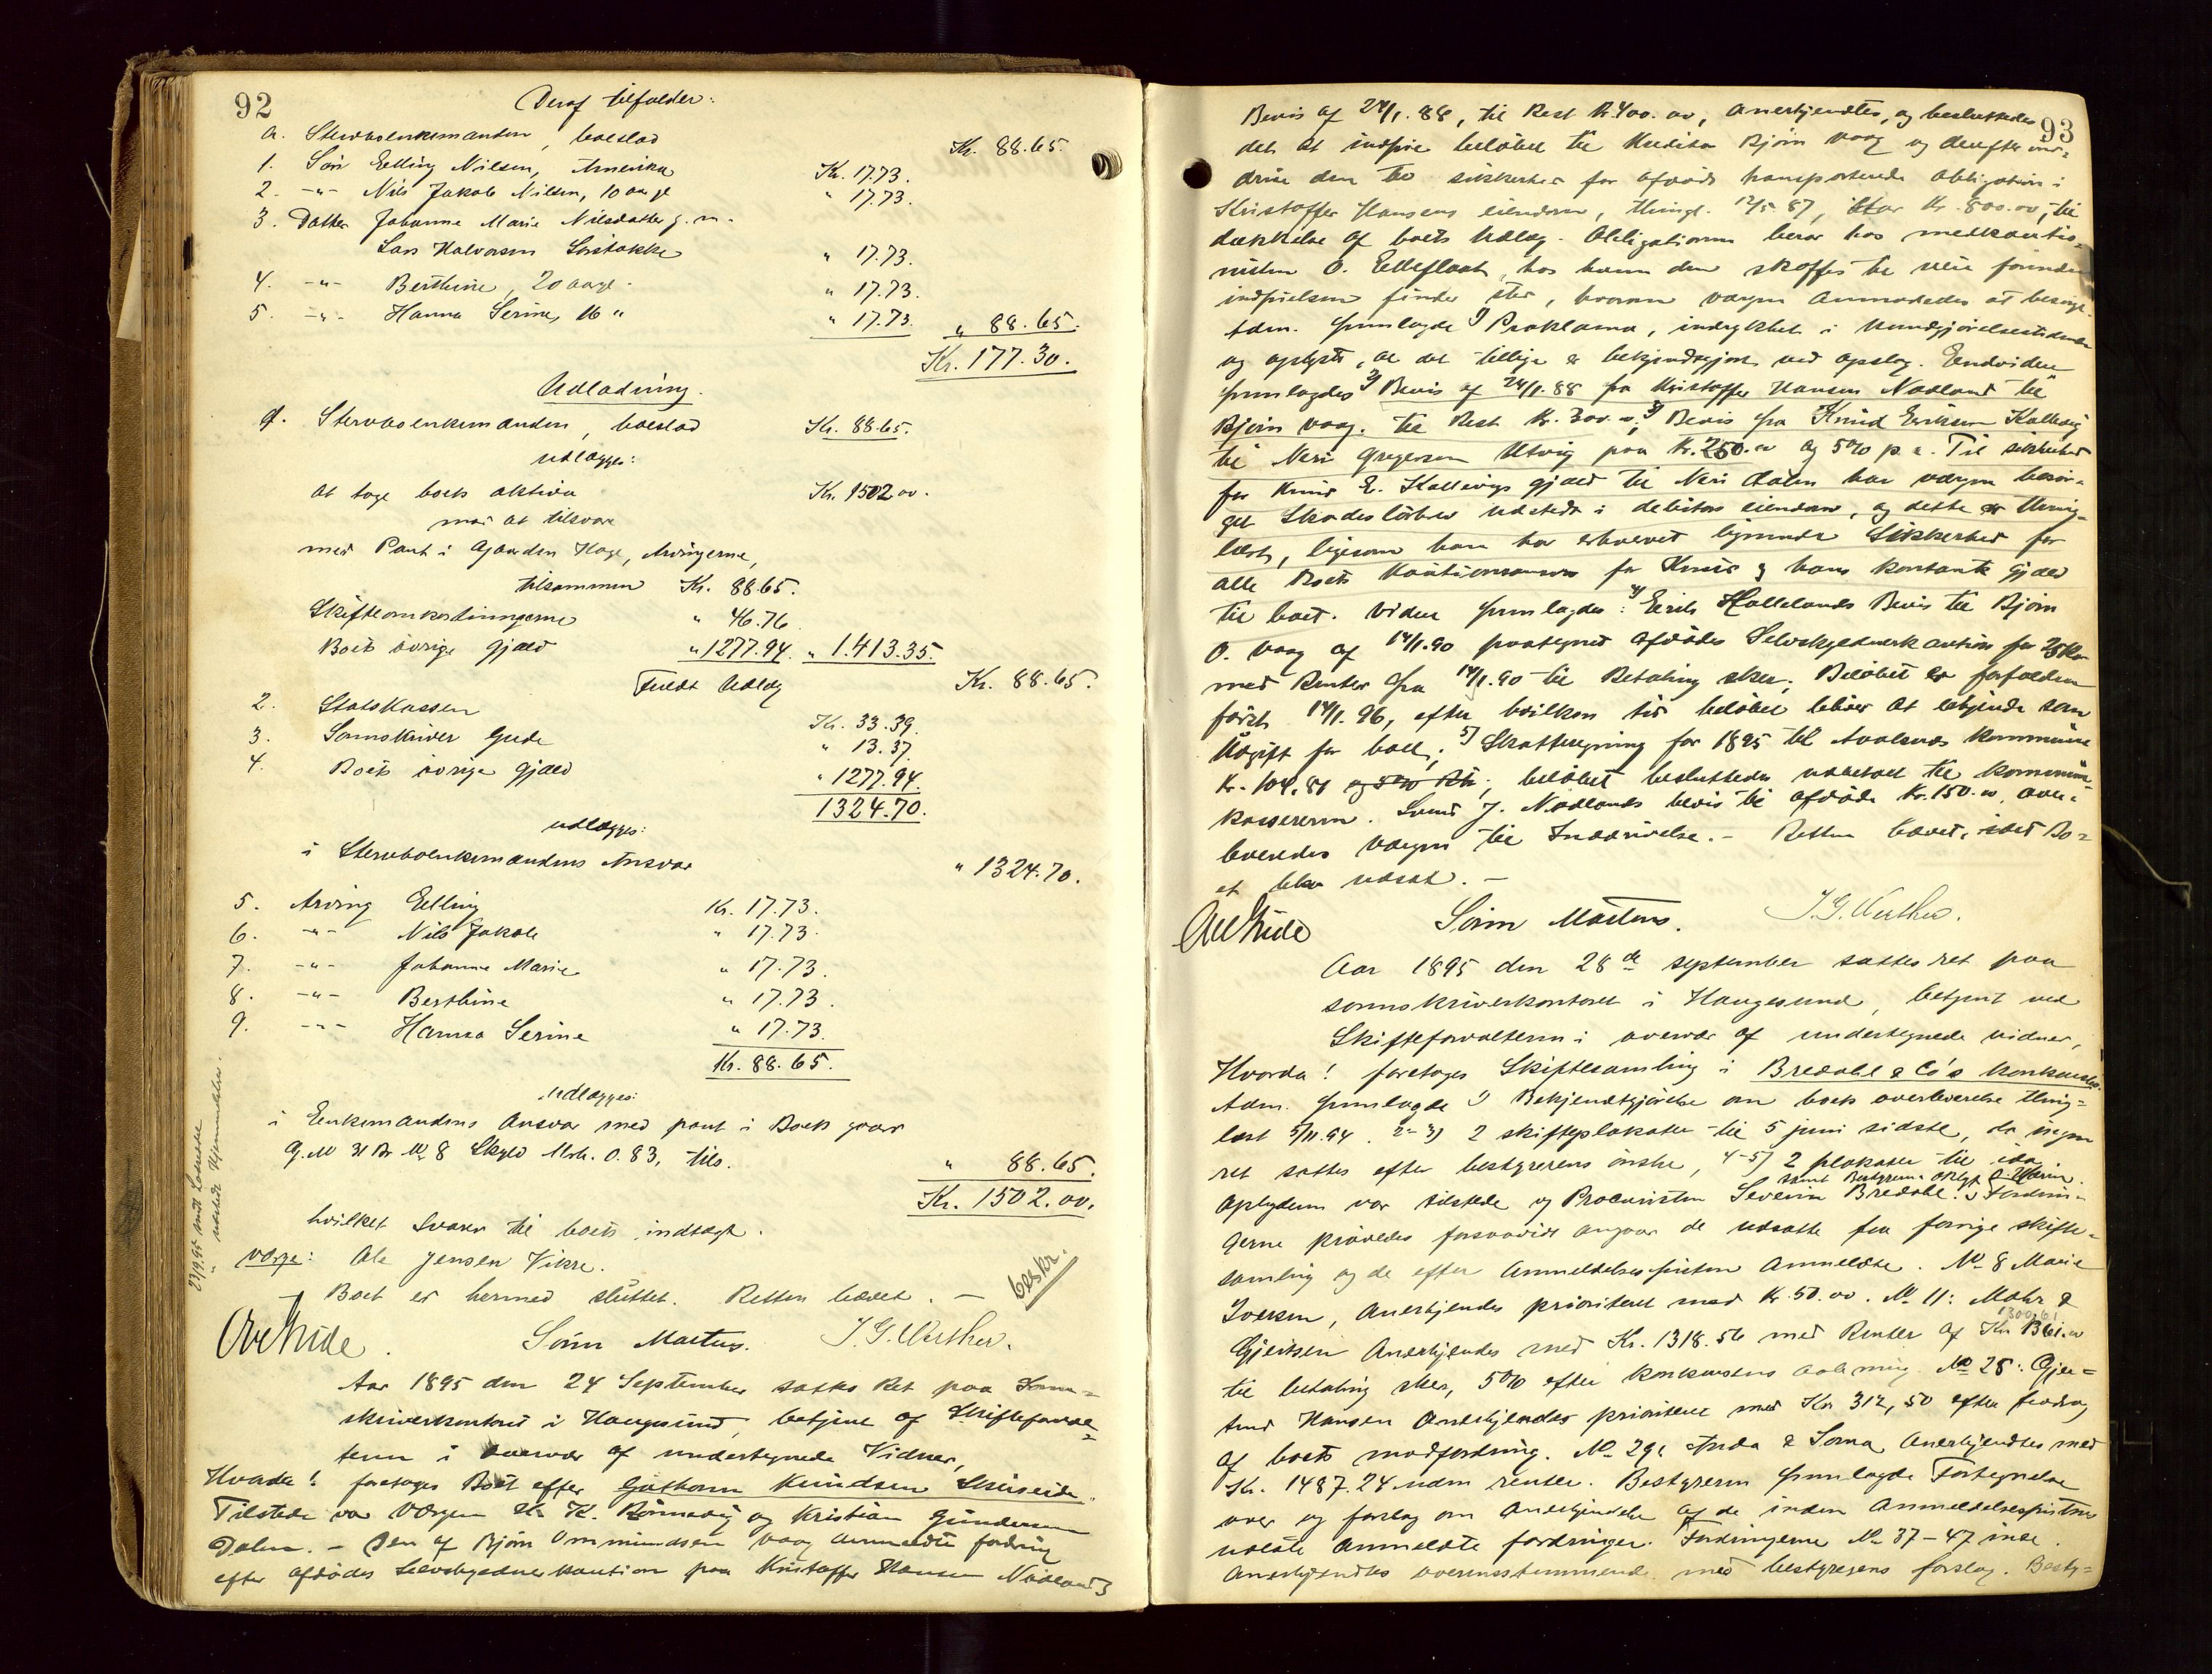 92
Deraf tilfalder:
a. Stervboenkemanden, boeslod Kr. 88.65.
1. Søn Elling Nilsen, Amerika Kr. 17.73.
2. -"- Nils Jakob Nilsen, 10 aar gl " 17.73.
3. Datter Johanne Marie Nilsdatter g. m.
Lars Halvorsen " 17.73.
4. -"- Berthine, 20 aar gl. " 17.73.
5. -"- Hanna Serine, 16 " " 17.73. " 88.65.
Kr. 177.30.
Udlodning.
1. Stervboenkemanden, boeslod Kr. 88.65.
udlægges:
at tage boets aktiva Kr. 1502.00.
mod at tilsvare
med Pant i Gaarden Hage, Arvingerne,
tilsammen Kr. 88.65.
Skifteomkostningerne " 46.76
Boets øvrige gjæld " 1277.94. " 1.413.35.
Fuldt Udlæg Kr. 88.65.
2. Statskassen Kr. 33.39.
3. Sorenskriver Gude " 13.37.
4. Boets øvrige gjæld " 1277.94.
1324.70.
udlægges:
i Stervboenkemandens Ansvar " 1324.70.
5. Arving Elling Kr. 17.73.
6. -"- Nils Jakob " 17.73.
7. -"- Johanne Marie " 17.73.
8. -"- Berthine " 17.73.
9. -"- Hanna Serine " 17.73.
Kr. 88.65.
udlægges:
i Enkemandens Ansvar med pant i Boets gaard
G.No 31 Br. No 8 Skyld Mrk. 0.83, tils. " 88.65.
Kr. 1502.00.
hvilket svarer til boets indtægt.
Værge: Ole Jensen Vikre.
Boet er hermed sluttet. Retten hævet. –
beskr.
Ove Gude. Sørin Martens. J. G. Werther.
Aar 1895 den 24 September sattes Ret paa Soren=
skriverkontoret i Haugesund, betjent af Skifteforval=
teren i overvær af undertegnede Vidner,
Hvorda! foretoges Boet efter Guthorm Knudsen
Tilstede var Værgen K. og Kristian Gundersen
Dalen. – Den af Bjørn Ommundsen Vaag anmeldte fordring
efter afdødes Selvskyldnerkaution paa Kristoffer Hansen Nødlands
93
Bevis af 24/1.88, til Rest Kr. 400.00, anerkjendtes, og besluttedes
det at indfrie beløbet til Kreditor Bjørn Vaag og derefter ind=
drive den til sikkerhed for afdøde transporterede obligation i
Kristoffer Hansens eiendom, thingl. 12/5.87, stor Kr. 800.00, til
dækkelse af boets Udlæg. Obligationen beror hos medkautio=
nisten O. hos ham den skaffes til veie forinden
indfrielsen finder sted, hvorom værgen anmodedes at besørge.
Adm. fremlagde 1) Proklama, indrykket i Kundgjørelsestidende
og oplyste, at det tillige er bekjendtgjort ved opslag. Endvidere
fremlagdes 2) Bevis af 24/1.88 fra Kristoffer Hansen Nødland til
Bjørn Vaag. til Rest Kr. 300.00; 3) Bevis fra Knud Eriksen Kallevig
til Neri Gregersen Utvig paa Kr. 250.00 og 5% p. a. Til sikkerhed
for Knud E. Kallevigs gjæld til Neri har værgen besør=
get Skadesløsbrev udstedt i debitors eiendom, og dette er thing=
læst, ligesom han har erhvervet lignende Sikkerhed for
alle Boets Kautionsansvar for Knud og hans kontante gjæld
til boet. Videre fremlagdes: 4) Eriks Hallelands Bevis til Bjørn
O. Vaag af 14/1.90 paategnet afdødes Selvskyldnerkaution for
med Renter fra 14/1.90 til Betaling sker; Beløbet er forfalden
først 14/1.96, efter hvilken tid beløbet bliver at afgjøre som
Udgift for boet; 5) Skatteregning for 1895 til Avaldsnes Kommune
Kr. 104.81; beløbet besluttedes udbetalt til kommune=
kassereren. Svend J. Nødlands bevis til afdøde Kr. 150.00 over=
leveredes Værgen til Inddrivelse. – Retten hævet, idet Bo=
et blev udsat. –
Ove Gude Sørin Martens. J. G. Werther.
Aar 1895 den 28de september sattes ret paa
sorenskriverkontoret i Haugesund, betjent ved
Skifteforvalteren i overvær af undertegnede vidner,
Hvorda! foretoges Skiftesamling i Bredahl & Co's konkursbo.
Adm. fremlagde 1) Bekjendtgjørelse om boets overleverelse thing=
læst 5/11.94. 2-3) 2 skifteplakater til 5 juni sidste, da ingen
ret sattes efter bestyrerens ønske, 4-5) 2 plakater til idag.
samt Bestyreren
Opbyderen var tilstede og Procuristen Severin Bredahl. Fordrin=
gerne prøvedes forsaavidt angaar de udsatte fra forrige skifte=
samling og de efter Anmeldelsesfristen anmeldte. No 8 Marie
Iversen, Anerkjendes prioriteret med Kr. 50.00. No 11: Mohr &
1300.61
Gjertsen Anerkjendes med Kr. 1318.56 med Renter af Kr.
til betaling sker, 5% efter konkursens aabning. No 28: Gjer=
trud Hansen Anerkjendes prioriteret med Kr. 312,50 efter fradrag
af boets modfordring. No 29: Anerkjendtes med
Kr. 1487.24 uden renter. Bestyreren fremlagde Fortegnelse
over og forslag om Anerkjendelse af de inden Anmeldelsesfristens
udløb anmeldte fordringer. Fordringerne No 37-47 incl.
Anerkjendtes overensstemmende med bestyrerens forslag. Besty=